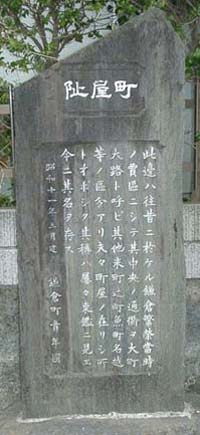 町屋址
此邊ハ往昔ニ於ケル鎌倉繁榮當時
ノ貨區ニシテ其中央ノ通衢ヲ大町
大路ト呼ビ其他米町辻町魚町名越
等ノ區分アリ夫々町屋ノ在リシ町
トオボシク其稱ハ屢々東鑑ニ見エ
今ニ其名ヲ存ス
昭和十一年三月建 鎌倉町青年團